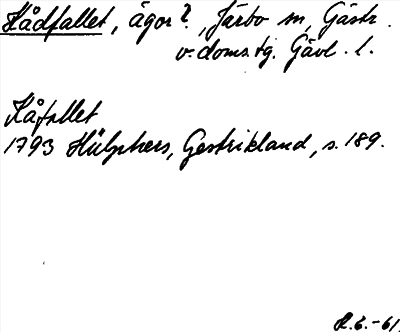 Kådfallet, ägor?, Järbo sn, Gästr.
v. doms.tg. Gävl. l.
Kåfallet
1793 Hülphers, Gestrikland, s. 189.
R.E.-61.